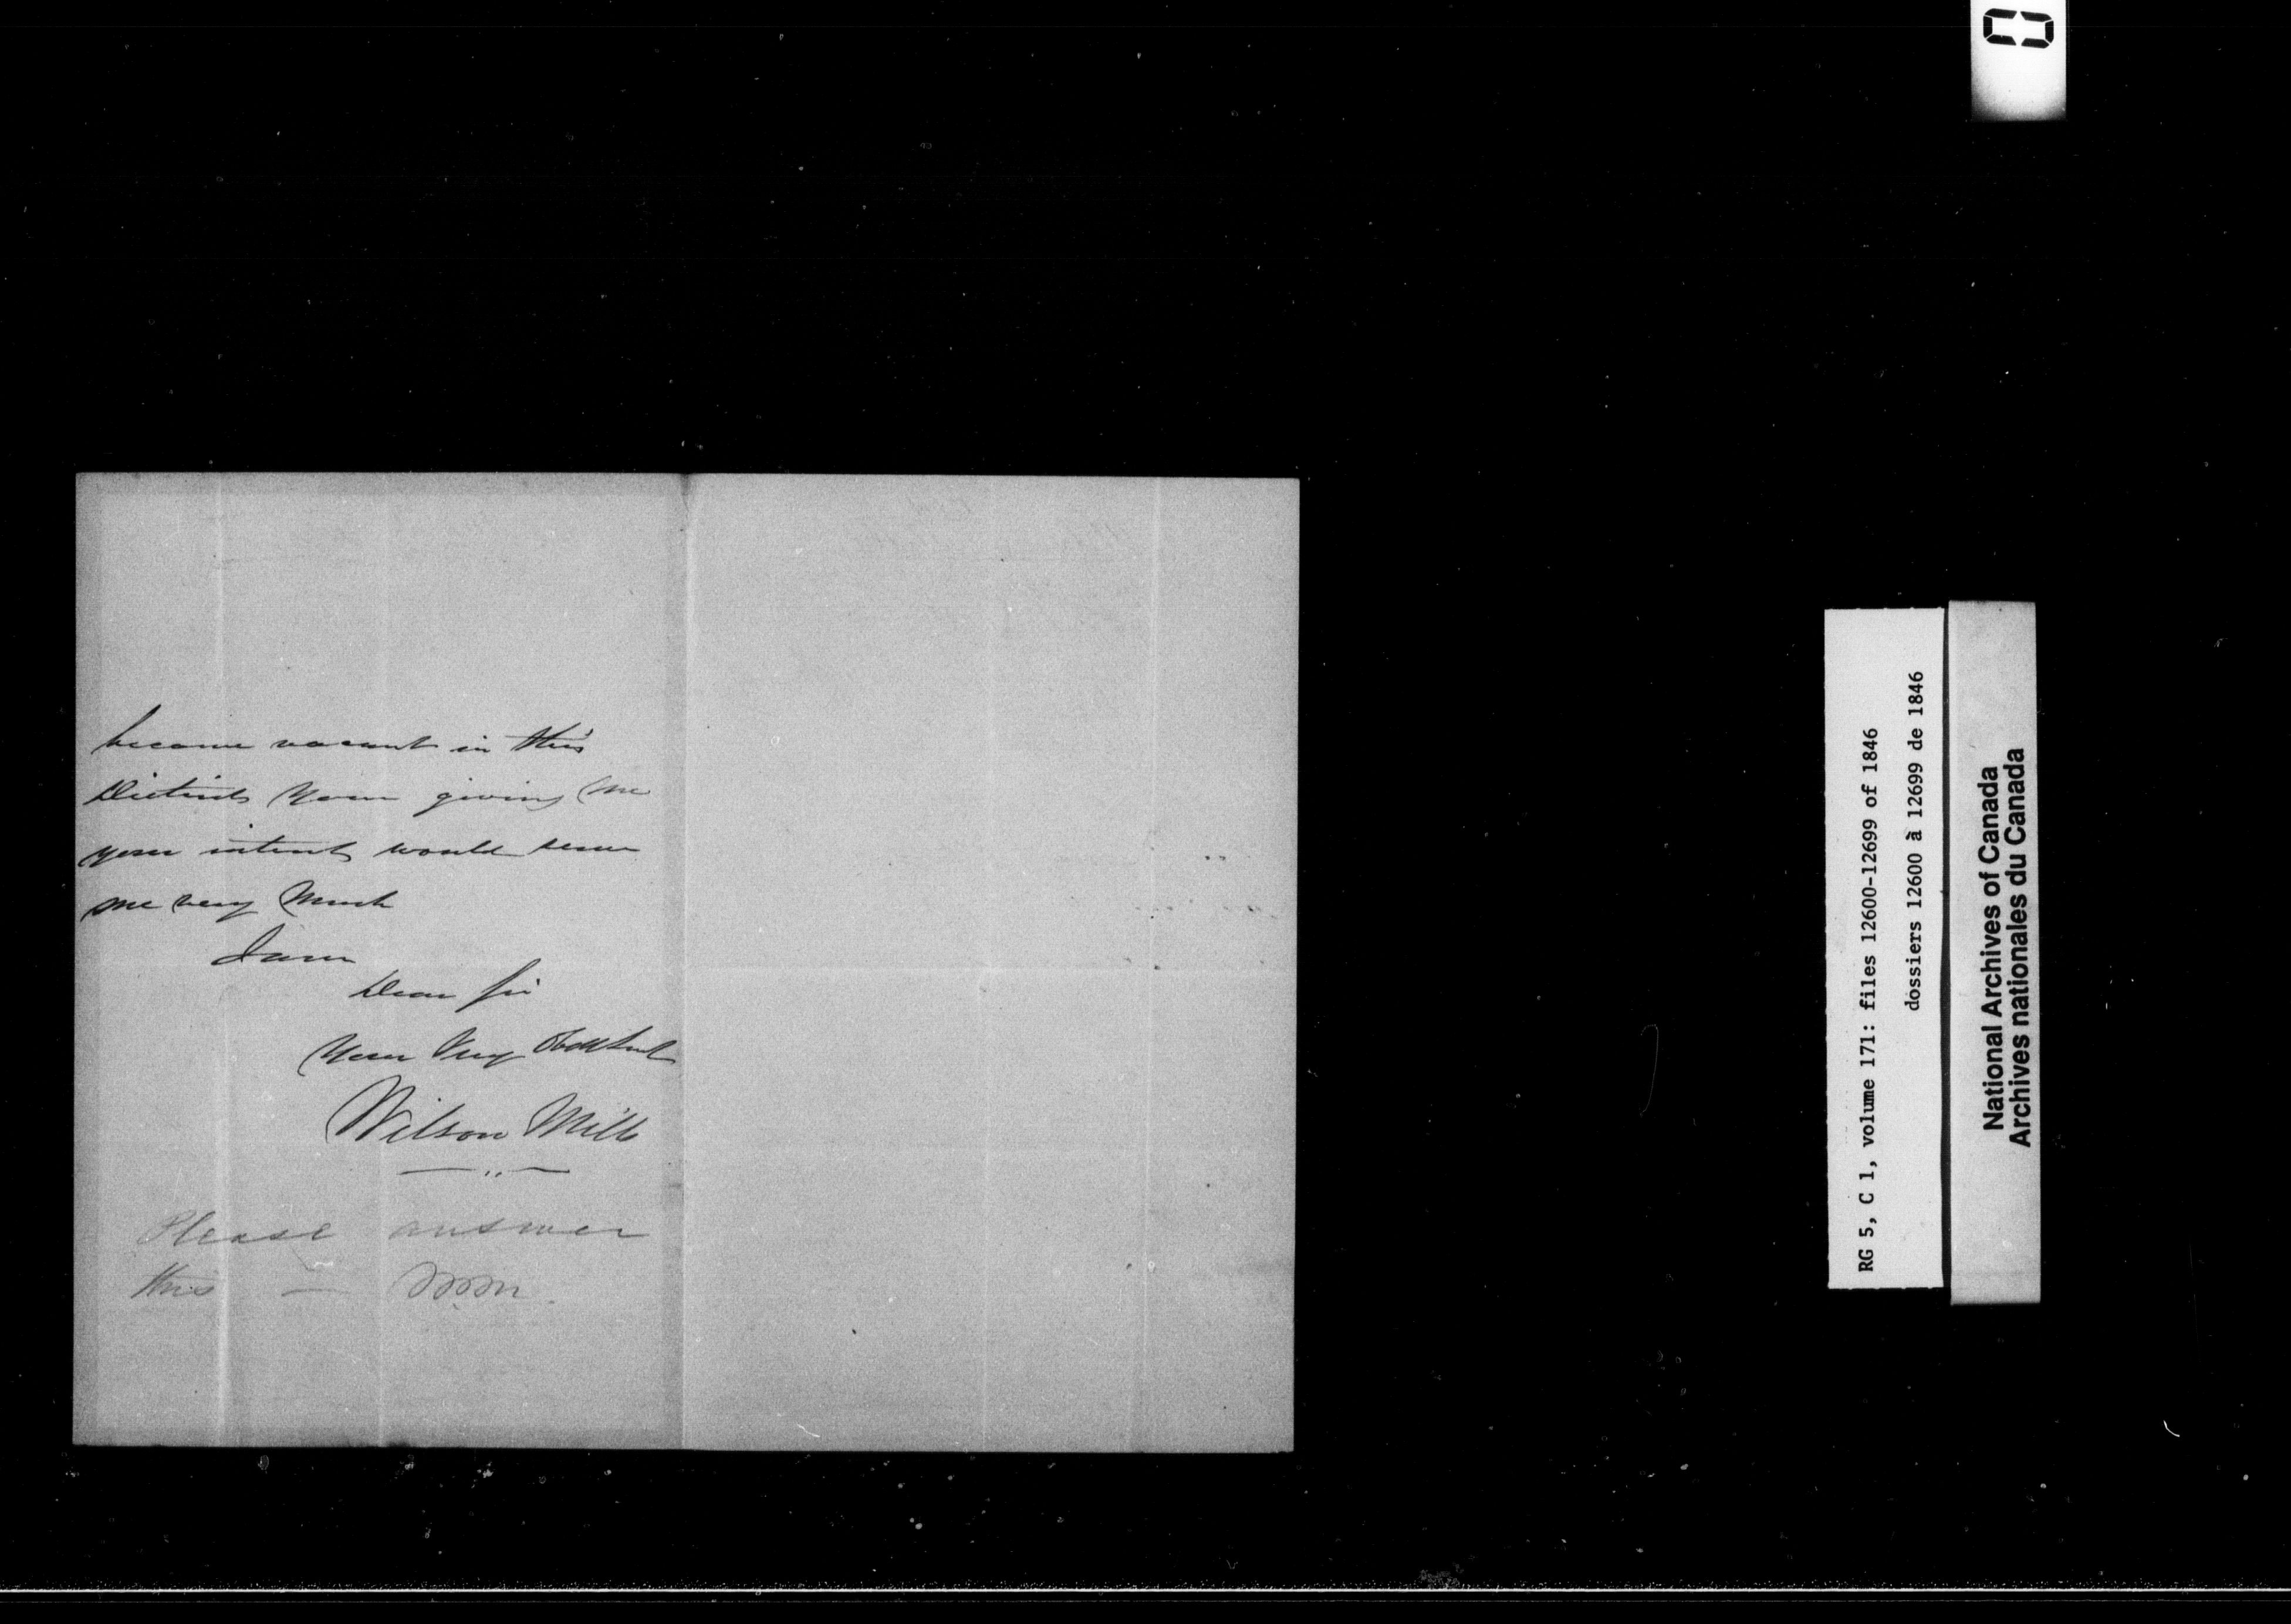 become vacant in this
District Your giving me
your interest would serve
me very Much
I am
Dear Sir
Your Very Obdt Servt
Wilson Mills
Please answer
this — soon
RG 5, C 1, volume 171: files 12600-12699 of 1846
dossiers 12600 à 12699 de 1846
National Archives of Canada
Archives nationales du Canada